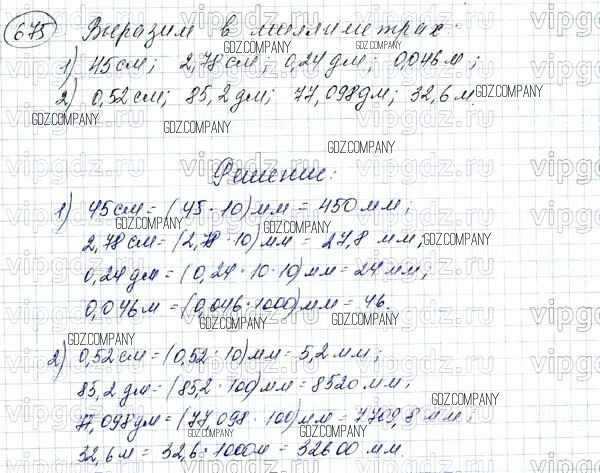 675 Выразим в миллиметрах:
1) 45 см; 2,78 см; 0,24 дм; 0,046 м;
2) 0,52 см; 85,2 дм; 77,098 дм; 32,6 м.
Решение:
1) 45 см = (45 · 10) мм = 450 мм;
2,78 см = (2,78 · 10) мм = 27,8 мм;
0,24 дм = (0,24 · 10 · 10) мм = 24 мм;
0,046 м = (0,046 · 1000) мм = 46.
2) 0,52 см = (0,52 · 10) мм = 5,2 мм;
85,2 дм = (85,2 · 100) мм = 8520 мм;
77,098 дм = (77,098 · 100) мм = 7709,8 мм;
32,6 м = 32,6 · 1000 м = 32600 мм.
GDZ.COMPANY
vipgdz.ru